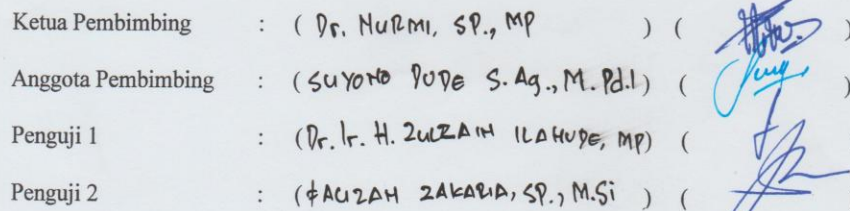 Ketua Pembimbing : ( Dr. NURMI, SP., MP ) ( )
Anggota Pembimbing : ( SUYONO DUDE S. Ag., M. Pd.I ) ( )
Penguji 1 : (Dr. Ir. H. ZULZAIN ILAHUDE, MP) (
Penguji 2 : (FAUZAH ZAKARIA, SP., M.Si ) (